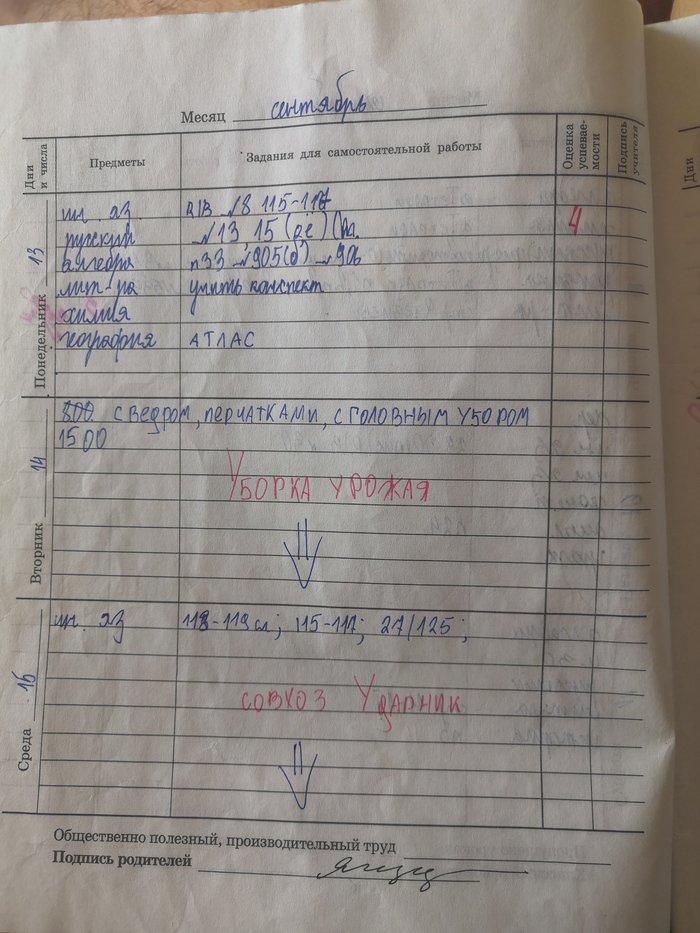 Месяц сентябрь
Дни и числа
Предметы
Задания для самостоятельной работы
Оценка успевае-мости
Подпись учителя
Дни
Понедельник 13
ин. яз. №8 115-117
русский №13, 15 4
алгебра п33 №905(б) №906
лит-ра учить конспект
химия
география АТЛАС
Вторник 14
800 С ВЕДРОМ, ПЕРЧАТКАМИ, С ГОЛОВНЫМ УБОРОМ
1500
УБОРКА УРОЖАЯ
Среда 15
ин. яз 118-119 сл; 115-117; 27/125;
СОВХОЗ УДАРНИК
Общественно полезный, производительный труд
Подпись родителей